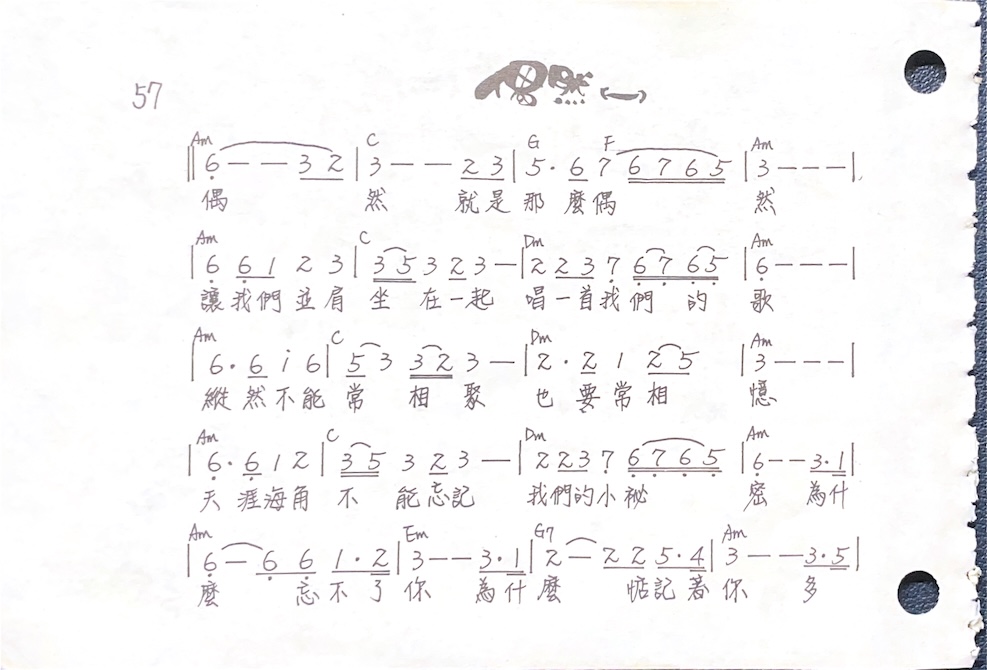 57
偶然(一)
Am C G F Am
‖ 6 — — 3 2 | 3 — — 2 3 | 5 · 6 7 6 7 6 5 | 3 — — — |
偶 然 就是那麼偶 然
Am C Dm Am
| 6 6 1 2 3 | 3 5 3 2 3 — | 2 2 3 7 6 7 6 5 | 6 — — — |
讓我們並肩坐在一起 唱一首我們的歌
Am C Dm Am
| 6 · 6 i 6 | 5 3 3 2 3 — | 2 · 2 1 2 5 | 3 — — — |
縱然不能常相聚 也要常相憶
Am C Dm Am
| 6 · 6 1 2 | 3 5 3 2 3 — | 2 2 3 7 6 7 6 5 | 6 — — 3 · 1 |
天涯海角不能忘記 我們的小祕密 為什
Am Em G7 Am
| 6 — 6 6 1 · 2 | 3 — — 3 · 1 | 2 — 2 2 5 · 4 | 3 — — 3 · 5 |
麼 忘不了你 為什麼 惦記著你 多